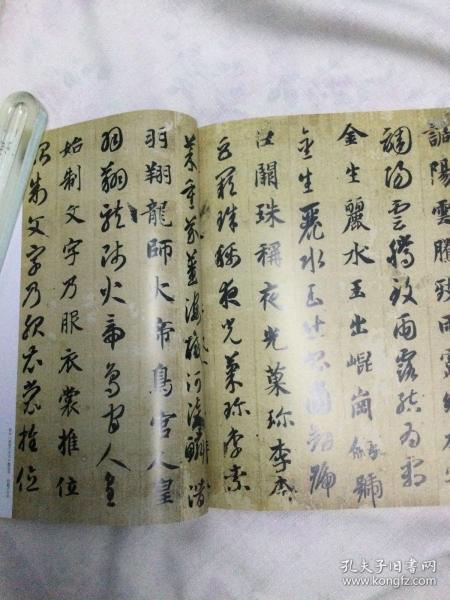 調陽雲騰致雨露結為
調陽雲騰致雨露結為霜
金生麗水玉出崐崗劍號
金生麗水玉出崐崗劍號
巨闕珠稱夜光菓珍李柰
巨闕珠稱夜光菓珍李柰
菜重芥薑海醎河淡鱗潛
羽翔龍師火帝鳥官人皇
羽翔龍師火帝鳥官人皇
始制文字乃服衣裳推位
始制文字乃服衣裳推位
孔夫子旧书网
www.kongfz.com